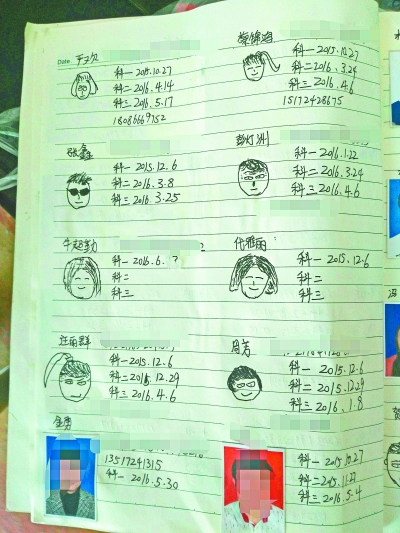 Date
科一 2015.10.27
科二 2016.4.14
科三 2016.5.17
18086669752
科一 2015.10.27
科二 2016.3.24
科三 2016.4.6
15172428675
张鑫
科一 2015.12.6
科二 2016.3.8
科三 2016.3.25
彭灯洲
科一 2016.1.22
科二 2016.3.24
科三 2016.4.6
牛超勤
科一 2016.6.?
科二
科三
代雅丽
科一 2015.12.6
科二
科三
汪丽群
科一 2015.12.6
科二 2015.12.29
科三 2016.4.6
周芳
科一 2015.12.6
科二 2015.12.29
科三 2016.1.8
金勇
13517241315
科一 2016.5.30
科一 2015.10.27
科二 2015.11.27
科三 2016.5.4